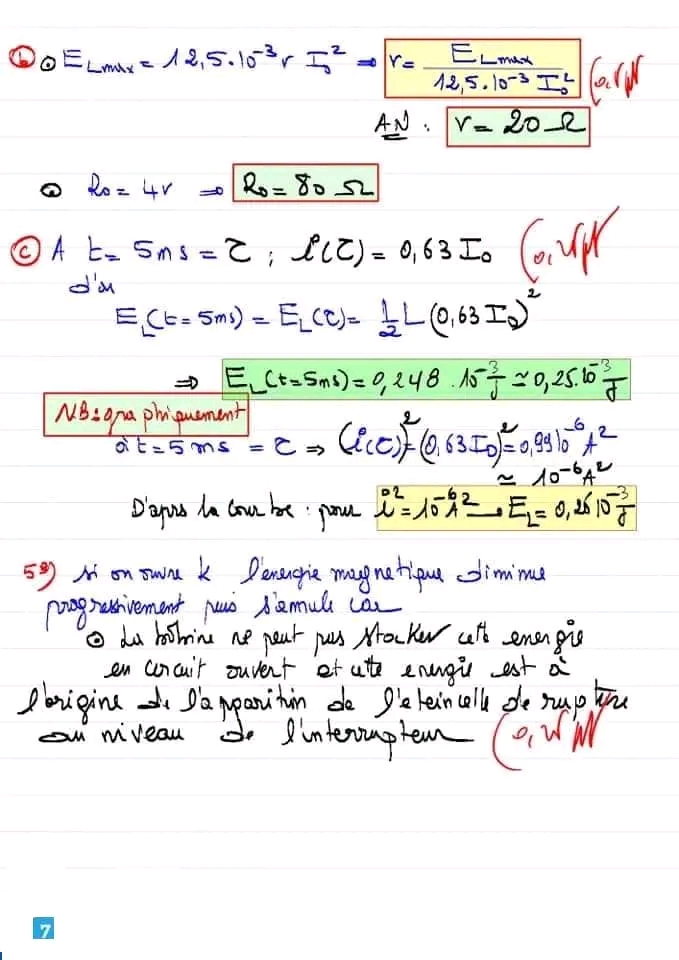 b) • E_Lmax = 12,5.10⁻³ r I₀² ⇒ r = E_Lmax / 12,5.10⁻³ I₀²
AN : r = 20 Ω
• R₀ = 4r ⇒ R₀ = 80 Ω
c) A t = 5ms = τ ; i(τ) = 0,63 I₀
d'où
E_L(t=5ms) = E_L(τ) = 1/2 L (0,63 I₀)²
⇒ E_L(t=5ms) = 0,248 .10⁻³ J ≃ 0,25.10⁻³ J
NB: graphiquement
à t = 5ms = τ ⇒ (i(τ))² = (0,63 I₀)² = 0,99 10⁻⁶ A²
≃ 10⁻⁶ A²
D'après la courbe : pour i² = 10⁻⁶ A² → E_L = 0,25 10⁻³ J
5°) si on ouvre k l'energie magnetique diminue
progressivement puis s'annule car
• La bobine ne peut pas stocker cette energie
en circuit ouvert et cette energie est à
l'origine de l'apparition de l'eteincelle de rupture
au niveau de l'interrupteur
7